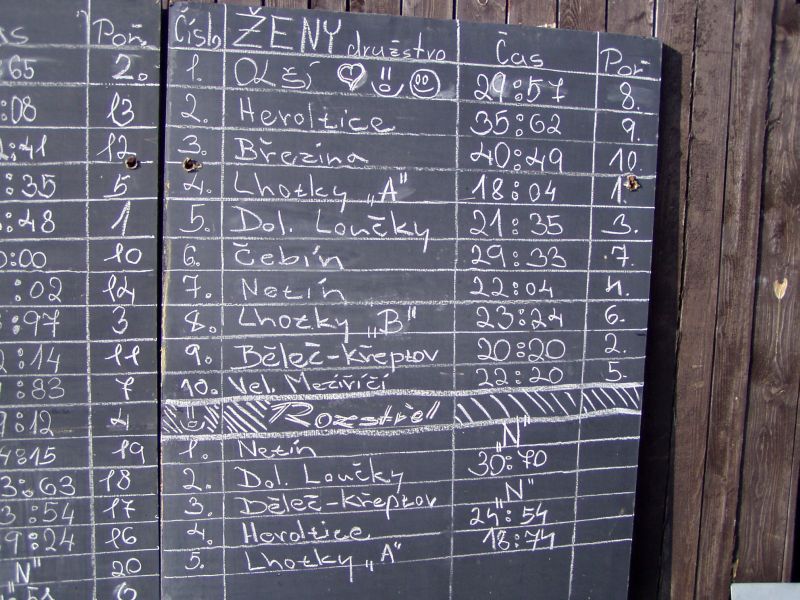 as Poř.
:65 2.
:08 13
:41 12
:35 5
:48 1
:00 10
:02 14
:97 3
2:14 11
:83 7
9:12 4
4:15 19
3:63 18
3:54 17
9:24 16
"N" 20
Číslo ŽENY družstvo Čas Poř.
1. Olší 29:57 8.
2. Heroltice 35:62 9.
3. Březina 40:49 10.
4. Lhotky „A" 18:04 1.
5. Dol. Loučky 21:35 3.
6. Čebín 29:33 7.
7. Netín 22:04 4.
8. Lhotky „B" 23:24 6.
9. Běleč-Křeptov 20:20 2.
10. Vel. Meziříčí 22:20 5.
Rozstřel
1. Netín „N"
2. Dol. Loučky 30:70
3. Běleč-Křeptov „N"
4. Heroltice 24:54
5. Lhotky „A" 18:74